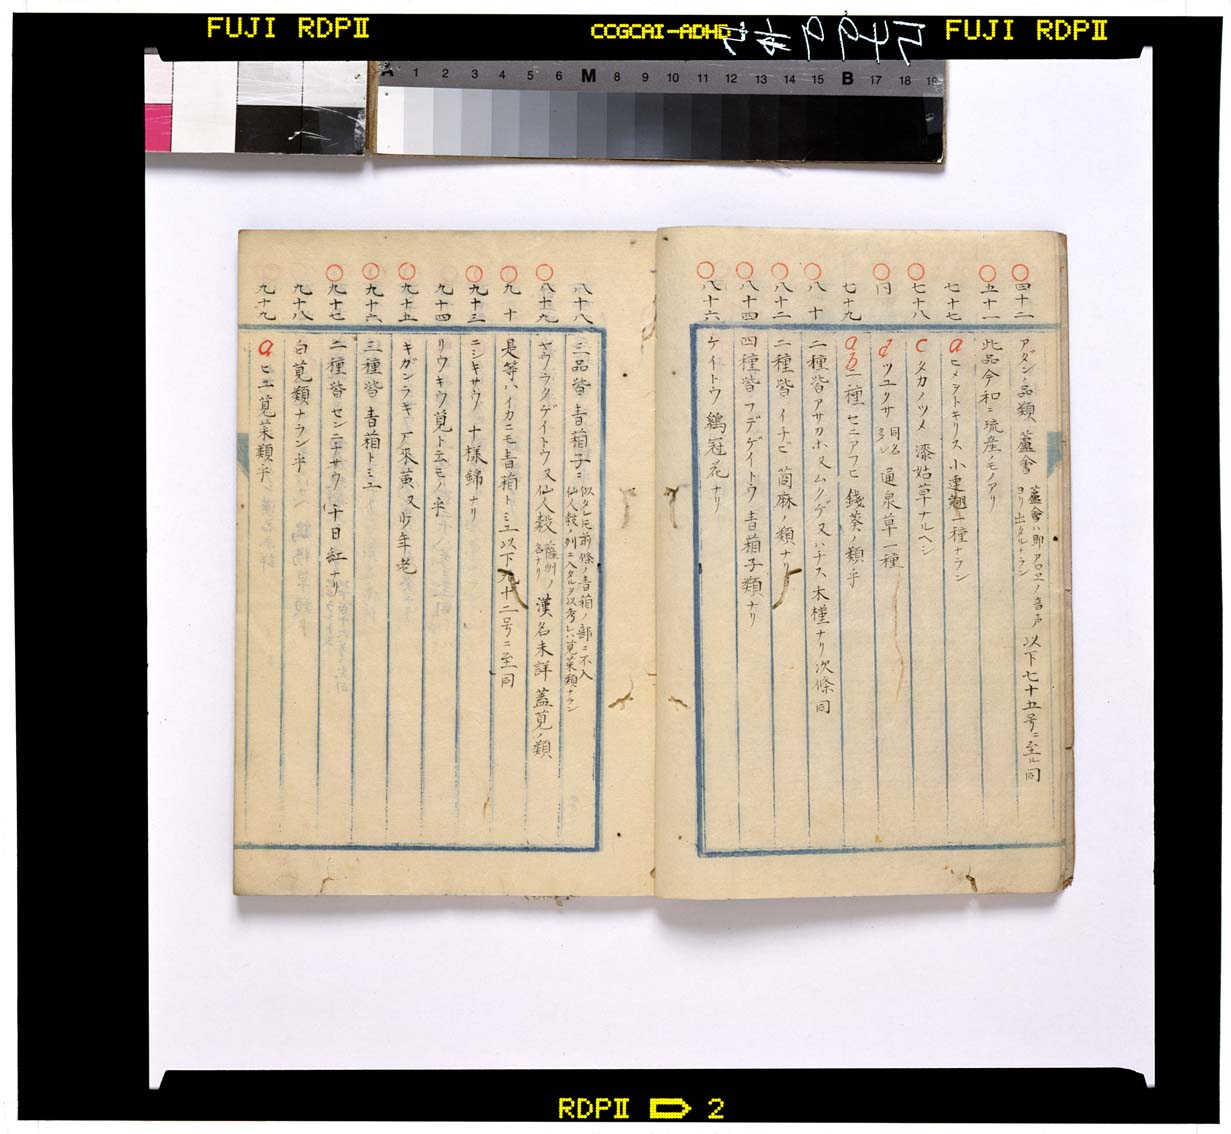 FUJI RDPⅡ
CCGCAI-ADHD
FUJI RDPⅡ
A 1 2 3 4 5 6 M 8 9 10 11 12 13 14 15 B 17 18 19
四十二 アダンノ品類 蘆會 蘆會ハ即アロヱノ音声ヨリ出タルナラン 以下七十五号ニ至ル同
五十一 此品今和ニ流産ノモノアリ
七十七 a ヒメヲトキリス 小連翹一種ナラン
七十八 c タカノツメ 漆姑草ナルヘシ
同 d ツユクサ 同名多シ 通泉草一種
七十九 a b 二種 セニアフヒ 錢葵ノ類乎
八十 二種皆アサカホ又ムクデ又ハチス木槿ナリ次條同
八十二 二種皆 イチビ 莔麻ノ類ナリ
八十四 四種皆フデゲイトウ 青葙子類ナリ
八十六 ケイトウ 鷄冠花ナリ
八十八 三品皆青葙子ニ 似タレ𪜈前條ノ青葙ノ部ニ不入仙人穀ノ列ニ入タルヲ以考レハ莧菜類ナラン
八十九 ヤウラクゲイトウ又仙人穀 薩州ノ名ナリ 漢名未詳 蓋莧ノ類
九十 是等ハイカニモ青葙トミエ以下九十二号ニ至同
九十三 ニシキサウ 十樣錦ナリ
九十四 リウキウ莧ト云モノ乎
九十五 キガンラキ 厂來黄又少年老
九十六 三種皆青葙トミユ
九十七 二種皆センニチサウ 千日紅ナリ
九十八 白莧類ナラン乎
九十九 a ヒユ莧菜類乎
RDPⅡ 2